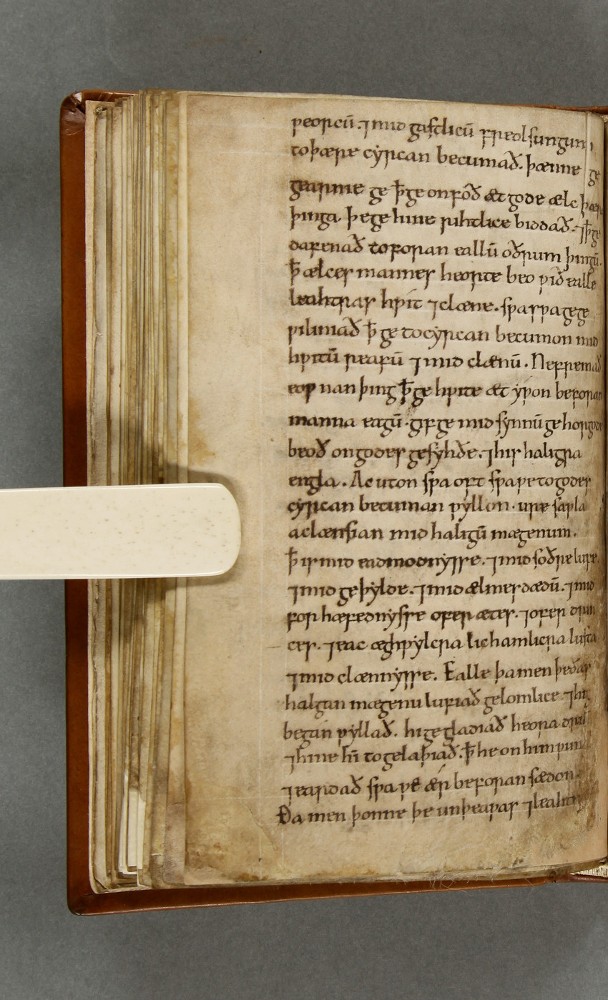 ƿeorcū. ⁊ mid gastlicū freolsungum
to þære cyrican becumað. þænne ge
gearnie ge ꝥ ge onfoð æt gode ælc
þinga. þe ge hine rihtlice biddað. ⁊
dafenað toforan eallū oðrum þingū.
ꝥ ælces mannes heorte beo ƿið ealle
leahtras hƿit ⁊ clæne. sƿa sƿa ge ge
ƿiliniað ꝥ ge to cyrican becumon mid
hƿitū reafū ⁊ mid clænū. Ne fremað
eoƿ nan þing ꝥ ge hƿite ætyƿon beforan
manna eagū. gif ge mid synnū ge horgode
beoð on godes gesyhðe. ⁊ his haligra
engla. Ac uton sƿa oft sƿa ƿe to godes
cyrican becuman ƿyllon. ure saƿla
aclænsian mid haligū mægenum.
ꝥ is mid eadmodnysse. ⁊ mid soðre lufe.
⁊ mid geþylde. ⁊ mid ælmesdædū. ⁊ mid
forhæfednysse ofer ætes. ⁊ ofer drin
ces. ⁊ eac æghƿylcra lichamlicra lusta
⁊ mid clænnysse. Ealle þa men þe ðas
halgan mægenu lufiað gelomlice. ⁊ hig
began ƿyllað. hi gegladiað heora
⁊ hine hī to gelaþiað. ꝥ he on him
⁊ eardað sƿa ƿe ær beforan sædon.
Ða men þonne þe unþeaƿas ⁊